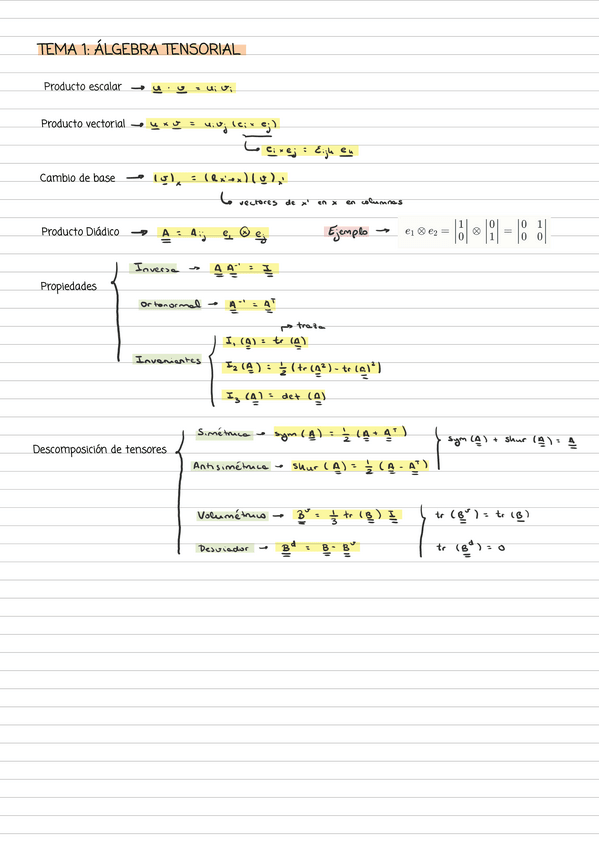 TEMA 1: ÁLGEBRA TENSORIAL
Producto escalar → u · v = uᵢ vᵢ
Producto vectorial → u × v = uᵢ vⱼ (eᵢ × eⱼ)
↳ eᵢ × eⱼ = εᵢⱼₖ eₖ
Cambio de base → (v)ₓ = (Rₓ'→ₓ)(v)ₓ'
↳ vectores de x' en x en columnas
Producto Diádico → A = Aᵢⱼ eᵢ ⊗ eⱼ
Ejemplo → e₁ ⊗ e₂ = |1 0| ⊗ |0 1| = |0 1 0 0|
Propiedades
Inversa → A A⁻¹ = I
Ortonormal → A⁻¹ = Aᵀ
→ traza
Invariantes
I₁ (A) = tr (A)
I₂ (A) = 1/2 (tr (A²) - tr (A)²)
I₃ (A) = det (A)
Descomposición de tensores
Simétrica → sym (A) = 1/2 (A + Aᵀ)
Antisimétrica → skur (A) = 1/2 (A - Aᵀ)
sym (A) + skur (A) = A
Volumétrico → Bᵛ = 1/3 tr (B) I
tr (Bᵛ) = tr (B)
Desviador → Bᵈ = B - Bᵛ
tr (Bᵈ) = 0